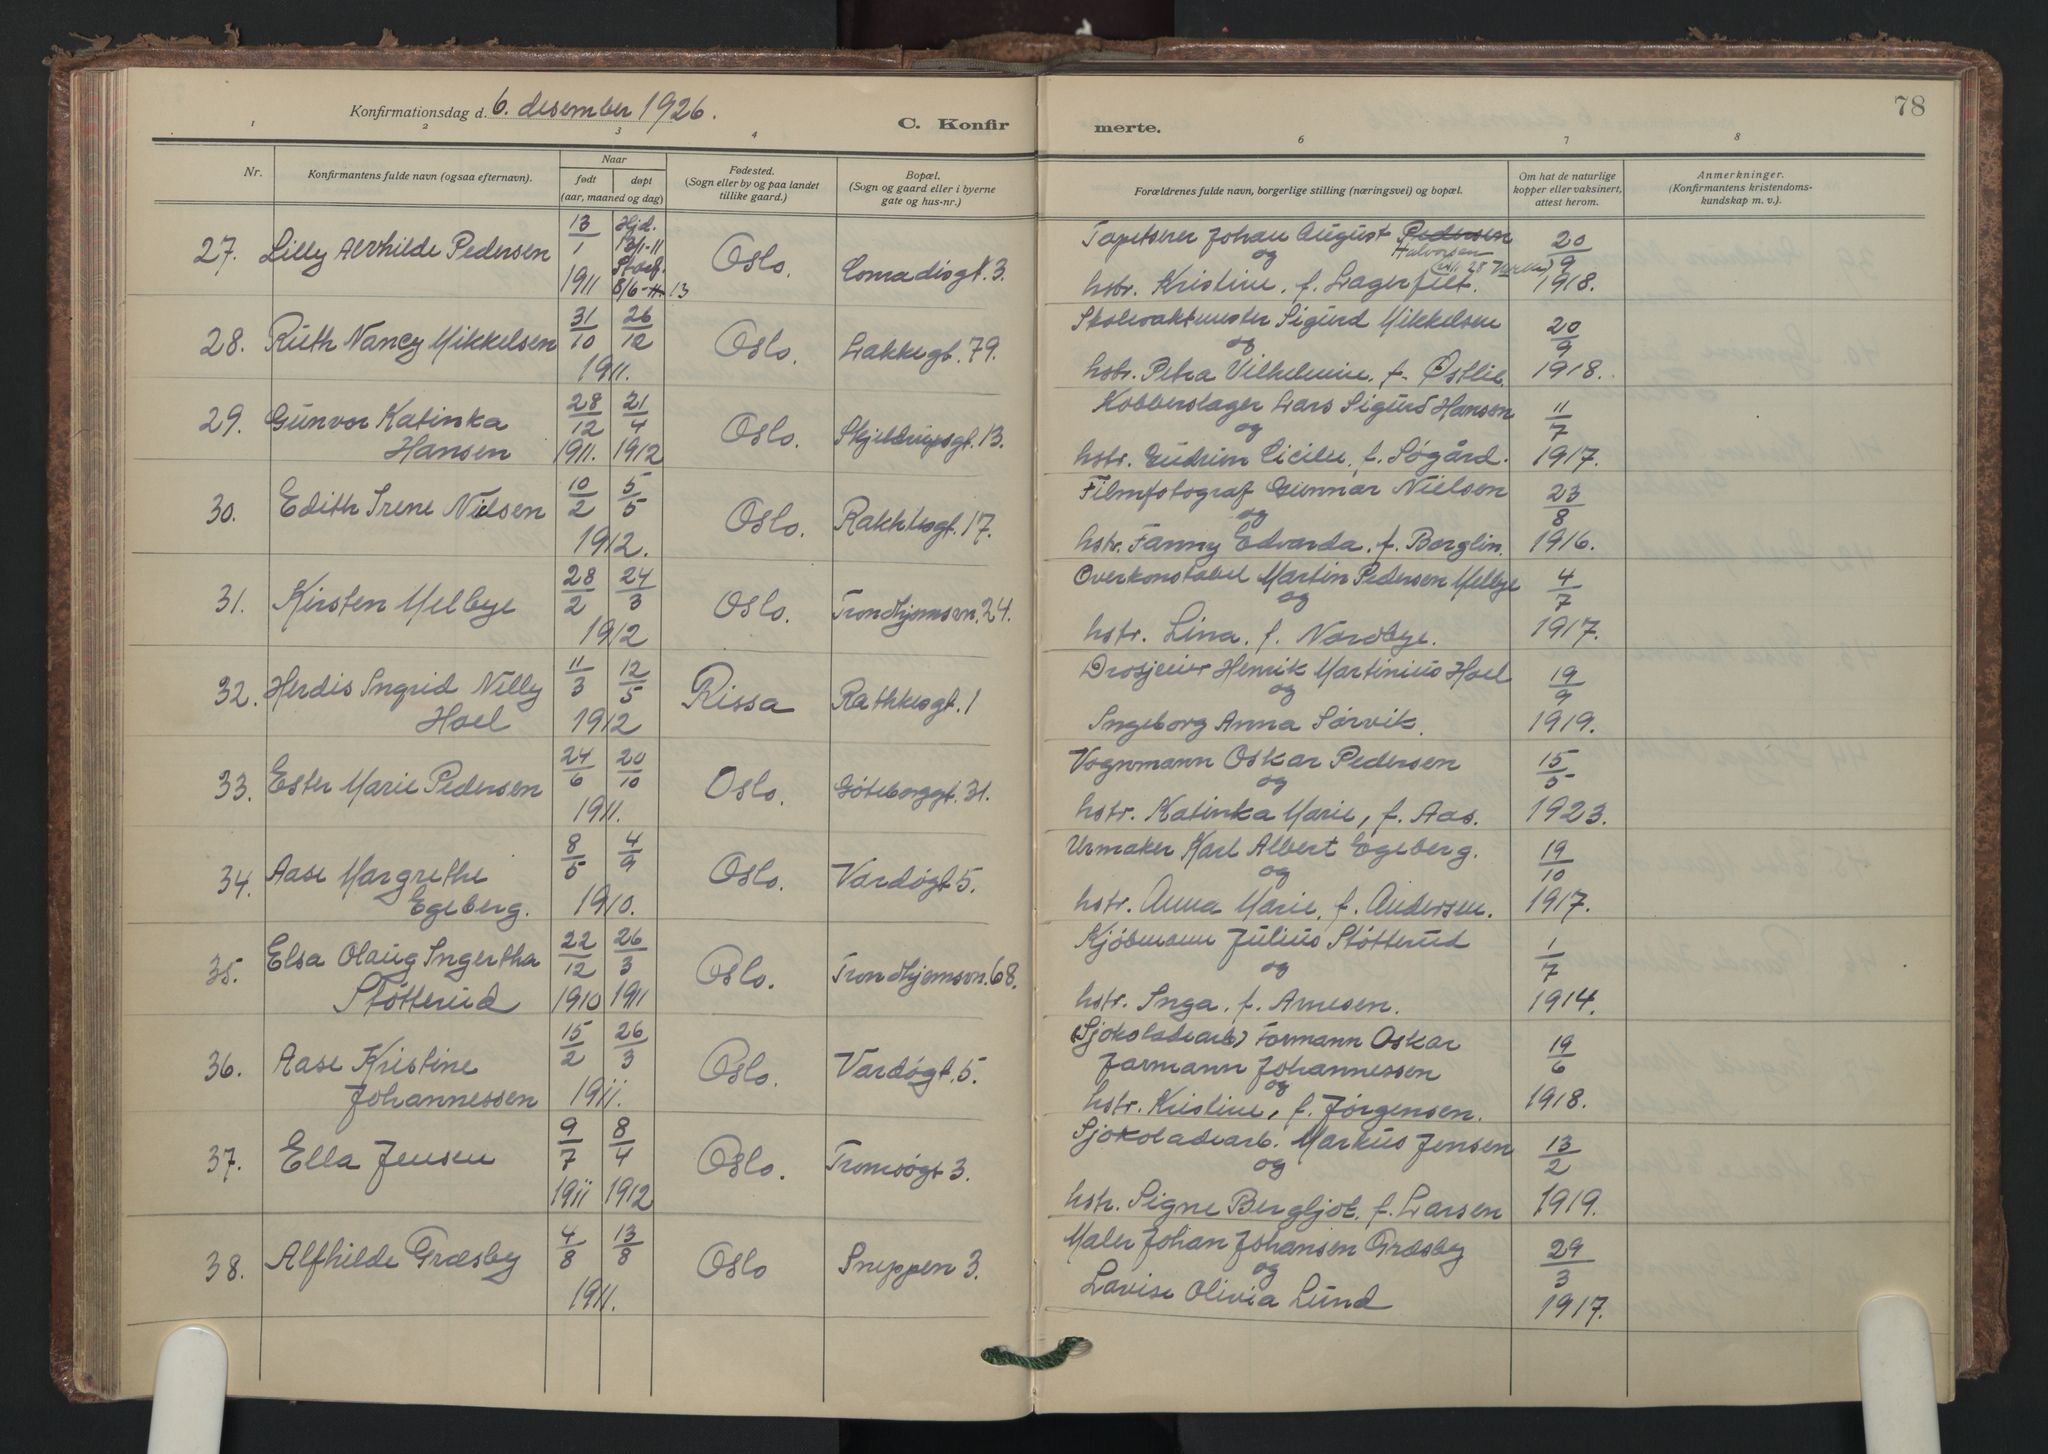 78
Konfirmationsdag d. 6. desember 1926.
C. Konfir
merte.
1 2 3 4 5 6 7 8
Nr.
Konfirmantens fulde navn (ogsaa efternavn).
Naar
født døpt
(aar, maaned og dag)
Fødested.
(Sogn eller by og paa landet
tillike gaard.)
Bopæl.
(Sogn og gaard eller i byerne
gate og hus-nr.)
Forældrenes fulde navn, borgerlige stilling (næringsvei) og bopæl.
Om hat de naturlige
kopper eller vaksinert,
attest herom.
Anmerkninger.
(Konfirmantens kristendoms-
kundskap m. v.).
27. Lilly Alvhilde Pedersen 13/1 1911 Hjd. 13/1-11 8/6-13 Oslo. Conradisgt. 3.
Tapetserer Johan August Pedersen
Halvorsen
og
hstr. Kristine, f. Lagerfelt. 20/9 1918.
28. Ruth Nancy Mikkelsen 31/10 26/12 1911. Oslo. Lakkegt. 79.
Skolevaktmester Sigurd Mikkelsen
og
hstr. Petra Vilhelmine, f. Østlie. 20/9 1918.
29. Gunvor Katinka
Hansen 28/12 1911. 21/4 1912 Oslo. Skjeldrupsgt. 13.
Kobberslager Lars Sigurd Hansen
og
hstr. Gudrun Cicilie, f. Søgård. 11/7 1917.
30. Edith Irene Nielsen 10/2 5/5 1912. Oslo. Rakkesgt. 17.
Filmfotograf Gunnar Nielsen
og
hstr. Fanny Edvarda, f. Berglin. 23/8 1916.
31. Kirsten Melbye 28/2 24/3 1912 Oslo. Trondhjemsvn. 24.
Overkonstabel Martin Pedersen Melbye
og
hstr. Lina, f. Nordbye. 4/7 1917.
32. Herdis Ingrid Nelly
Hoel 11/3 12/5 1912 Rissa Rathkesgt. 1
Drosjeeier Henrik Martinius Hoel
og
Ingeborg Anna Sørvik. 19/9 1919.
33. Ester Marie Pedersen 24/6 20/10 1911. Oslo. Gøteborggt. 31.
Vognmann Oskar Pedersen
og
hstr. Katinka Marie, f. Aas. 15/5 1923.
34. Aase Margrethe
Egeberg. 8/5 4/9 1910. Oslo. Vardøgt 5.
Urmaker Karl Albert Egeberg.
og
hstr. Anna Marie, f. Andersen. 19/10 1917.
35. Elsa Olaug Ingertha
Støtterud 22/12 1910 26/3 1911 Oslo. Trondhjemsvn. 68.
Kjøbmann Julius Støtterud
og
hstr. Inga, f. Arnesen. 1/7 1914.
36. Aase Kristine
Johannessen 15/2 26/3 1911. Oslo. Vardøgt. 5.
(Sjokoladearb) Formann Oskar
Jarmann Johannessen
og
hstr. Kristine, f. Jørgensen. 19/6 1918.
37. Ella Jensen 9/7 1911 8/4 1912 Oslo. Tromsøgt 3.
Sjokoladearb. Markus Jensen
og
hstr. Signe Bergljot, f. Larsen 13/2 1919.
38. Alfhilde Græsby 4/8 13/8 1911. Oslo Sneppen 3.
Maler Johan Johansen Græsby
og
Lovise Olivia Lund 29/3 1917.